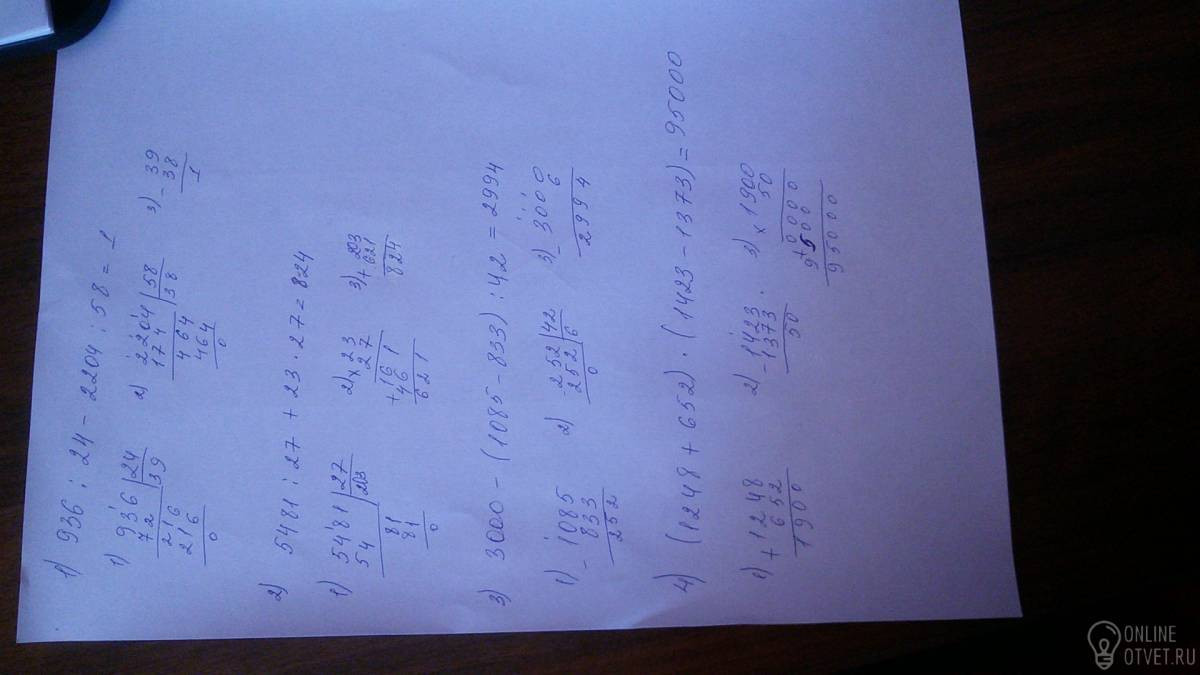 1) 936 : 24 - 2204 : 58 = 1
1) 936 | 24
72 | 39
216
216
0
2) 2204 | 58
174 | 38
464
464
0
3) - 39
38
1
2) 5481 : 27 + 23 · 27 = 824
1) 5481 | 27
54 | 203
81
81
0
2) × 23
27
+ 161
46
621
3) + 203
621
824
3) 3000 - (1085 - 833) : 42 = 2994
1) - 1085
833
252
2) - 252 | 42
252 | 6
0
3) - 3000
6
2994
4) (1248 + 652) · (1423 - 1373) = 95000
1) + 1248
652
1900
2) - 1423
1373
50
3) × 1900
50
+ 0000
9500
95000
ONLINE
OTVET.RU